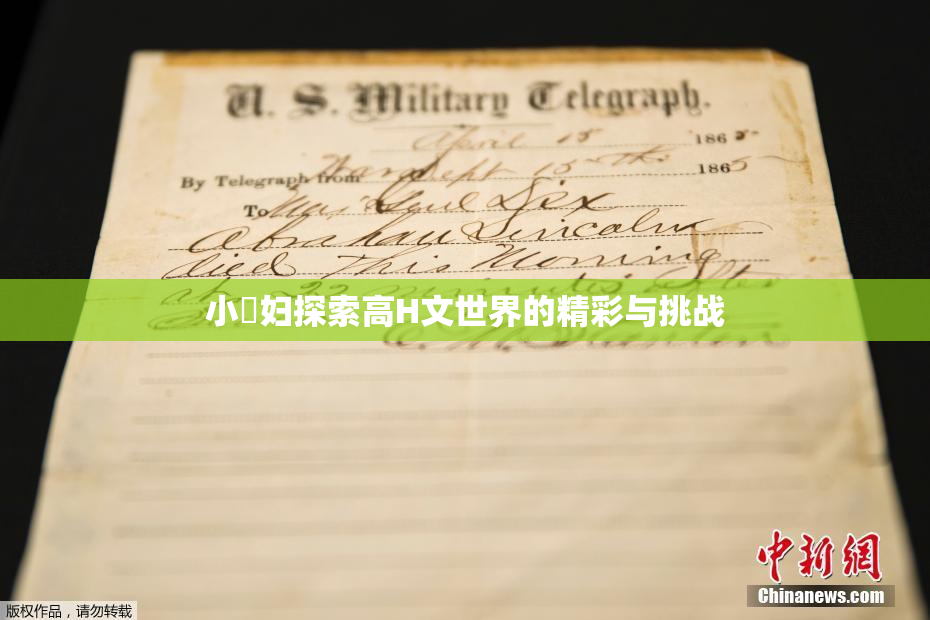 U. S. Military Telegraph.
April 15 1865
By Telegraph from War Dept 15th 1865
To Maj Genl Dix
Abraham Lincoln
died This Morning
at 22 minutes after
小妇探索高H文世界的精彩与挑战
中新網
Chinanews.com
版权作品，请勿转载